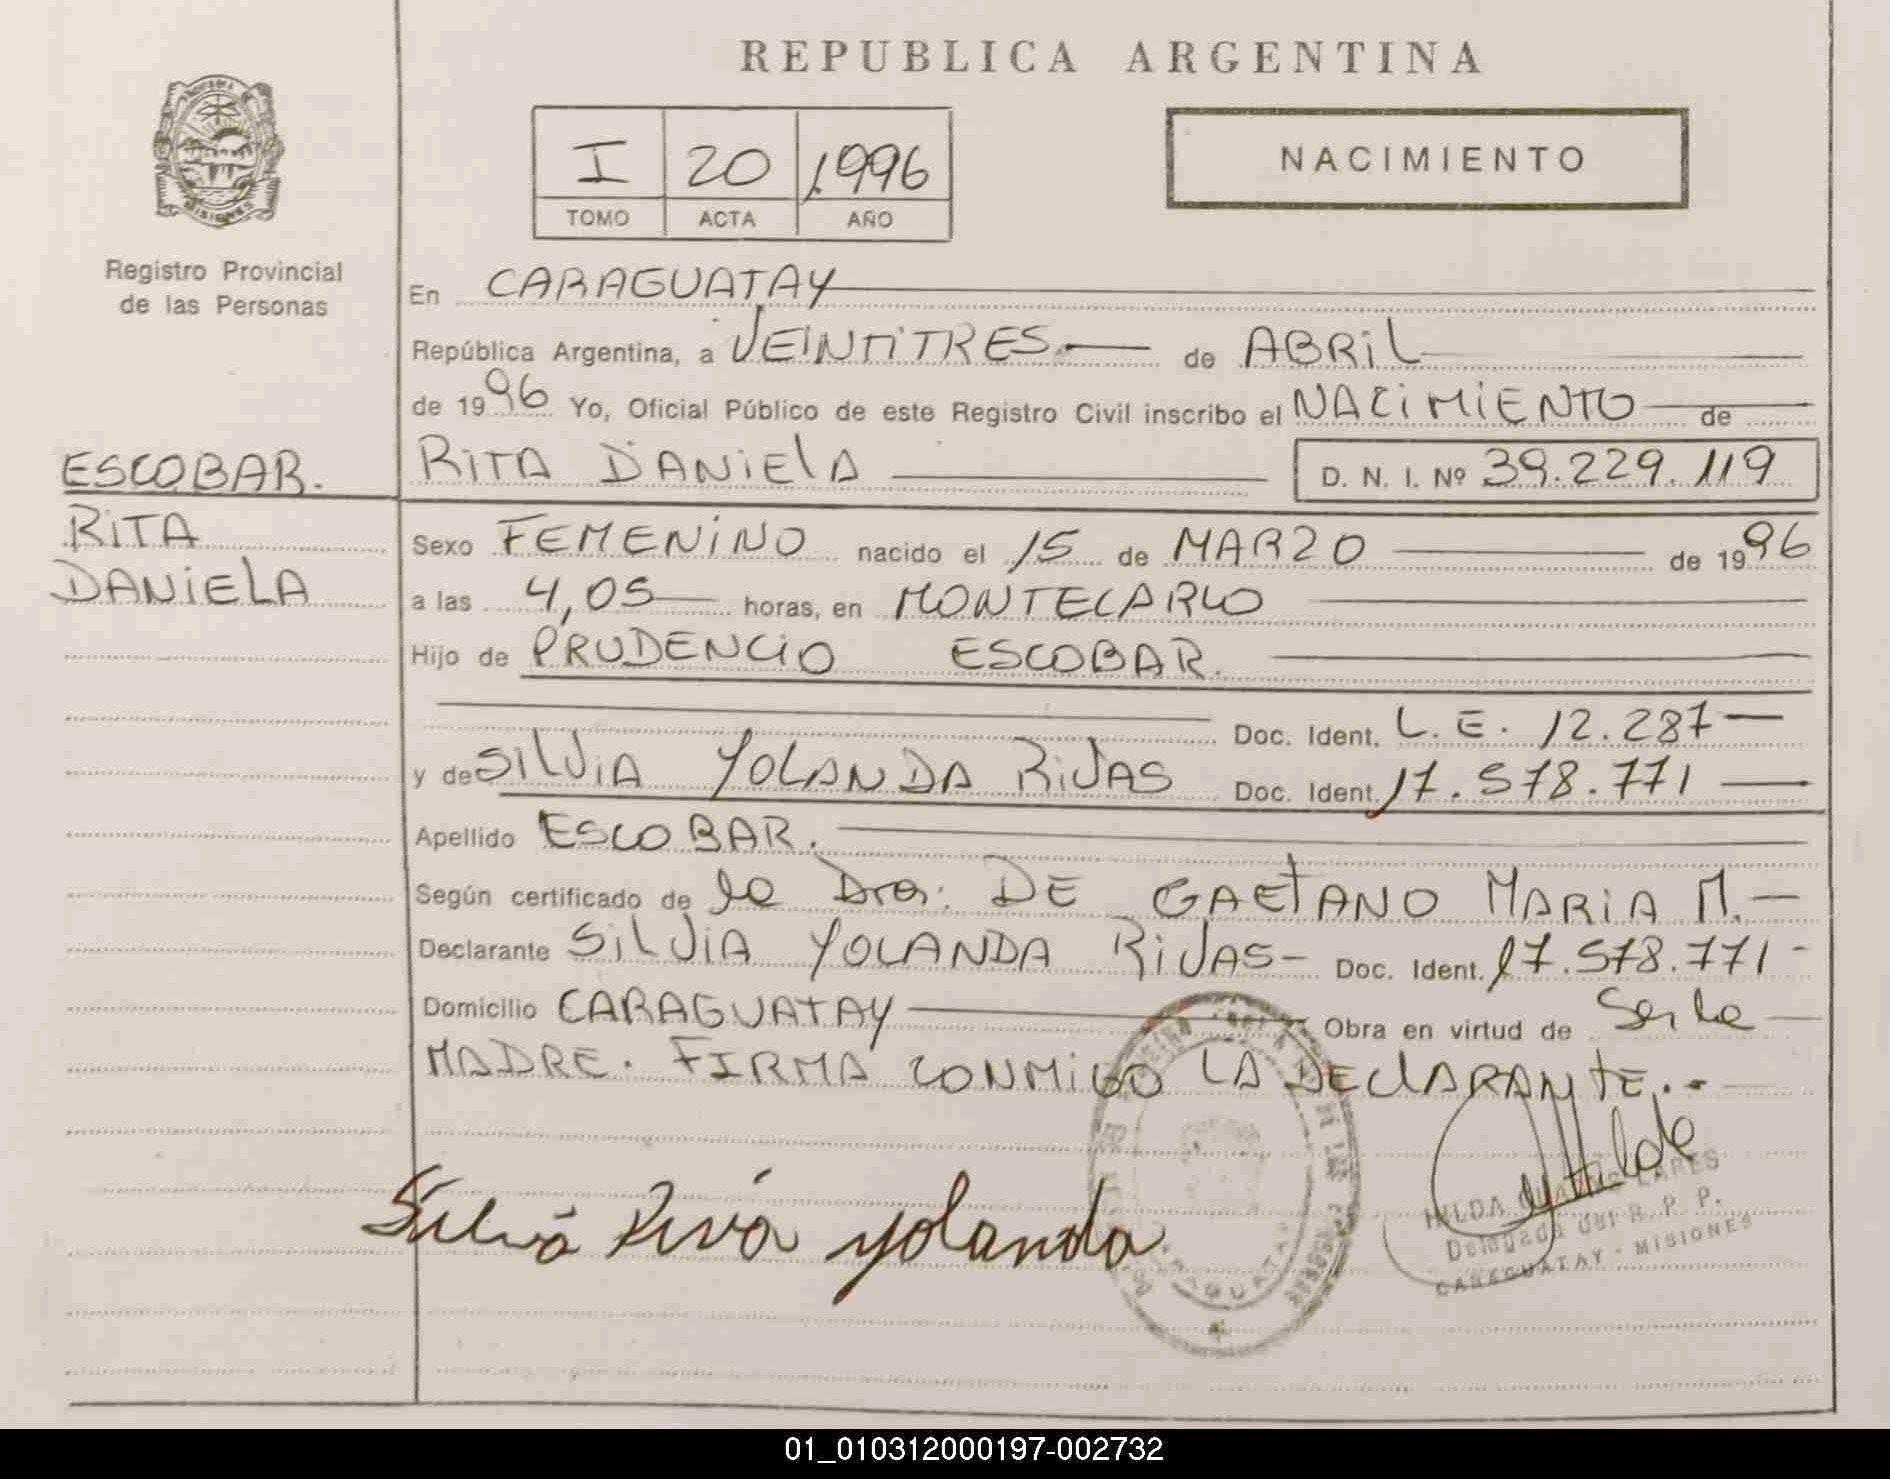 REPUBLICA ARGENTINA
MISIONES
Registro Provincial
de las Personas
I 20 1996
TOMO ACTA AÑO
NACIMIENTO
En CARAGUATAY
República Argentina, a VEINTITRES de ABRIL
de 1996 Yo, Oficial Público de este Registro Civil inscribo el NACIMIENTO de
RITA DANIELA D. N. I. Nº 39.229.119
ESCOBAR.
RITA
DANIELA
Sexo FEMENINO nacido el 15 de MARZO de 1996
a las 4,05 horas, en MONTECARLO
Hijo de PRUDENCIO ESCOBAR.
Doc. Ident. L.E. 12.287
y de SILVIA YOLANDA RIVAS Doc. Ident. 17.578.771
Apellido ESCOBAR.
Según certificado de la Dra. DE GAETANO MARIA M.
Declarante SILVIA YOLANDA RIVAS- Doc. Ident. 17.578.771-
Domicilio CARAGUATAY Obra en virtud de Ser la
MADRE. FIRMA CONMIGO LA DECLARANTE.-
Silvia Riva yolanda
HILDA LARES
Delegada del R. P. P.
CARAGUATAY - MISIONES
01_010312000197-002732